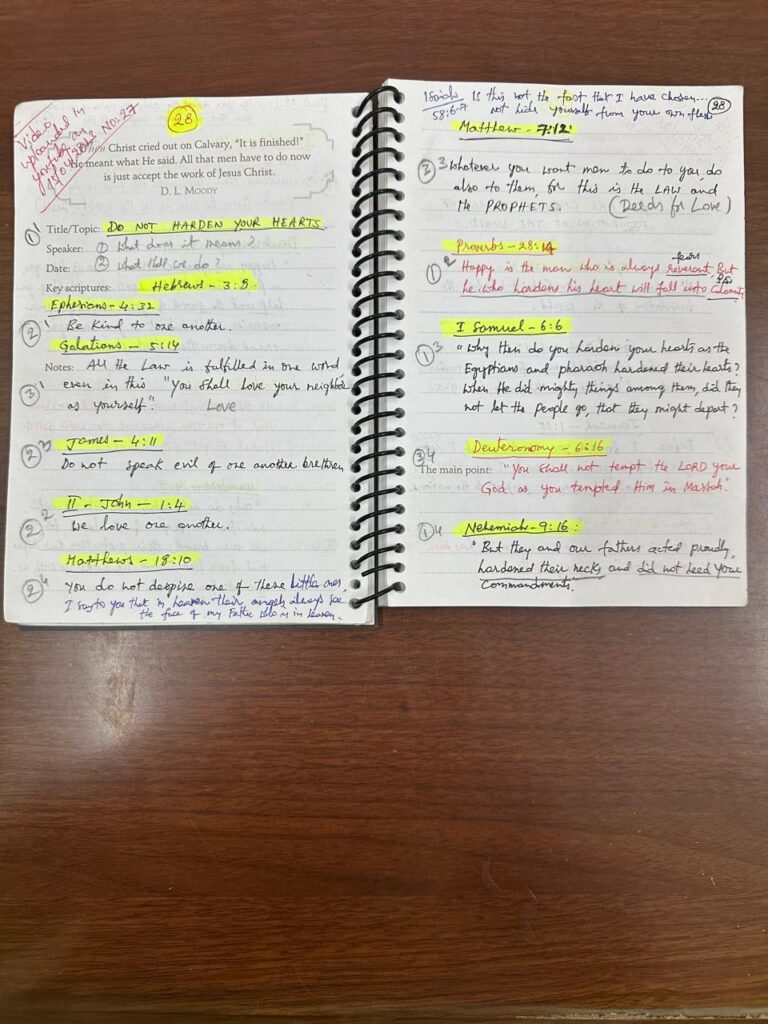 Video
uploaded in
youtube on
NO:27
28
When Christ cried out on Calvary, "It is finished!"
He meant what He said. All that men have to do now
is just accept the work of Jesus Christ.
D. L. MOODY
① Title/Topic: DO NOT HARDEN YOUR HEARTS.
Speaker: ① What does it means?
Date: ② What shall we do?
Key scriptures: Hebrews - 3:8
Ephesians - 4:32
② 1 Be kind to one another.
Galatians - 5:14
Notes: All the Law is fulfilled in one word
③ 1 even in this "You shall love your neighbor
as yourself". Love
James - 4:11
② 3 Do not speak evil of one another brethren
II - John - 1:4
② 2 We love one another.
Matthews - 18:10
② 4 You do not despise one of these little ones,
I say to you that in heaven their angels always see
the face of my Father who is in heaven.
Isaiah 58:6-7 Is this not the fast that I have chosen...
not hide yourself from your own flesh
28
Matthew - 7:12
3 Whatever you want men to do to you, do
also to them, for this is the LAW and
the PROPHETS. (Deeds for Love)
Proverbs - 28:14
fears
① 2 Happy is the man who is always reverant, But
he who hardens his heart will fall into Calamity
I Samuel - 6:6
① 3 "Why then do you harden your hearts as the
Egyptians and pharaoh hardened their hearts?
When He did mighty things among them, did they
not let the people go, that they might depart?
Deuteronomy - 6:16
③ 4
The main point: "You shall not tempt the LORD your
God as you tempted Him in Massah."
① 4 Nehemiah - 9:16:
"But they and our fathers acted proudly,
hardened their necks and did not heed your
commandments."